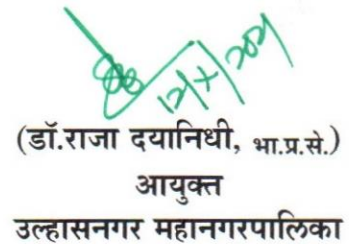 12/X/2021
(डॉ.राजा दयानिधी, भा.प्र.से.)
आयुक्त
उल्हासनगर महानगरपालिका